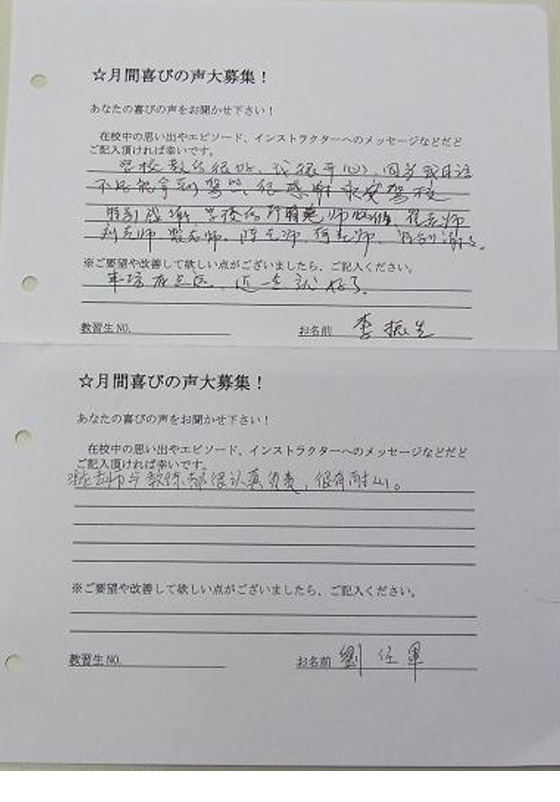 ☆月間喜びの声大募集！
あなたの喜びの声をお聞かせ下さい！
在校中の思い出やエピソード、インストラクターへのメッセージなどだと
ご記入頂ければ幸いです。
学校教的很好，我很开心，
不足能拿到驾照，很感谢 驾校
特别感谢 学校的所有 老师 崔老师
刘老师 裴老师、陈老师、何老师、特别谢
※ご要望や改善して欲しい点がございましたら、ご記入ください。
车 近一点就好了。
教習生NO.
お名前 李振
☆月間喜びの声大募集！
あなたの喜びの声をお聞かせ下さい！
在校中の思い出やエピソード、インストラクターへのメッセージなどだと
ご記入頂ければ幸いです。
老师与教练都很认真负责，很有耐心。
※ご要望や改善して欲しい点がございましたら、ご記入ください。
教習生NO.
お名前 劉 軍